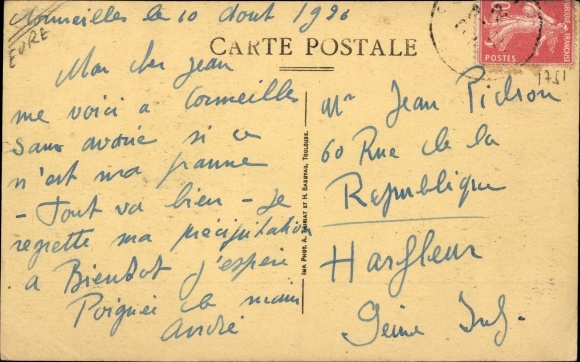 EURE
Cormeilles le 10 Aout 1926
CARTE POSTALE
Mon cher Jean
me voici a Cormeilles
sans avoir si ce
n'est ma panne
- Tout va bien - Je
regrette ma précipitation
a Bientot j'espère
Poignée de main
André
IMP. PHOT. A. THIRIAT ET H. BASUYAU, TOULOUSE.
POSTES
1751
Mr Jean Pichon
60 Rue de la
Republique
Harfleur
Seine Inf.